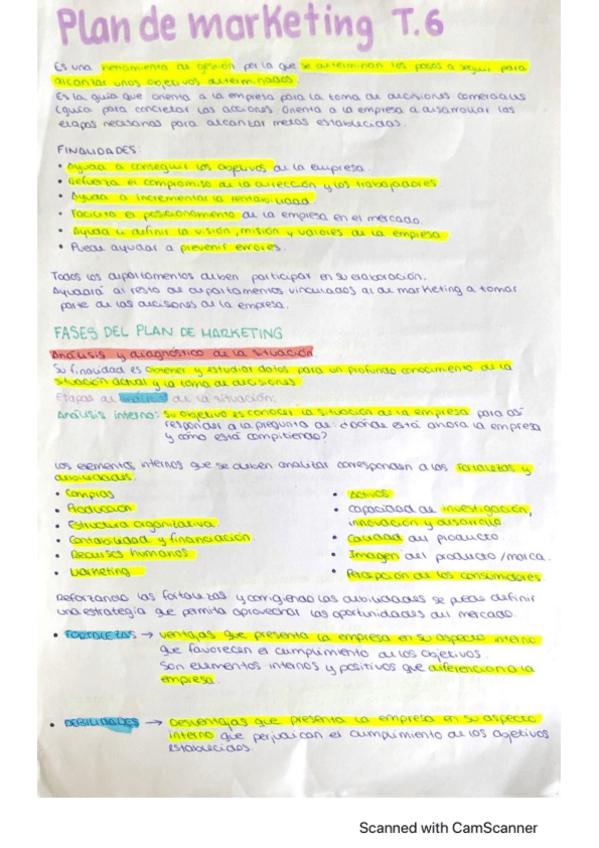 Plan de marketing T.6
Es una herramienta de gestión por la que se determinan los pasos a seguir para
alcanzar unos objetivos determinados.
Es la guía que orienta a la empresa para la toma de decisiones comerciales
(guía para concretar las acciones. Orienta a la empresa a desarrollar las
etapas necesarias para alcanzar metas establecidas.
FINALIDADES:
• Ayuda a conseguir los objetivos de la empresa.
• Refuerza el compromiso de la dirección y los trabajadores
• Ayuda a incrementar la rentabilidad
• Facilita el posicionamiento de la empresa en el mercado.
• Ayuda a definir la visión, misión y valores de la empresa
• Puede ayudar a prevenir errores.
Todos los departamentos deben participar en su elaboración.
Ayudará al resto de departamentos vinculados al de marketing a tomar
parte de las decisiones de la empresa.
FASES DEL PLAN DE MARKETING
Análisis y diagnóstico de la situación.
Su finalidad es obtener y estudiar datos para un profundo conocimiento de la
situación actual y la toma de decisiones
Etapas de análisis de la situación:
Análisis interno: Su objetivo es conocer la situación de la empresa para así
responder a la pregunta de: ¿dónde está ahora la empresa
y cómo está compitiendo?
Los elementos internos que se deben analizar corresponden a las fortalezas y
debilidades.
• Compras
• Producción
• Estructura organizativa
• Contabilidad y financiación.
• Recursos humanos
• Marketing
• Activos
• Capacidad de investigación,
innovación y desarrollo
• Calidad del producto.
• Imagen del producto/marca.
• Percepción de los consumidores.
Reforzando las fortalezas y corrigiendo las debilidades se puede definir
una estrategia que permita aprovechar las oportunidades del mercado.
• FORTALEZAS → ventajas que presenta la empresa en su aspecto interno
que favorecen el cumplimiento de los objetivos.
Son elementos internos y positivos que diferencian a la
empresa.
• DEBILIDADES → Desventajas que presenta la empresa en su aspecto
interno que perjudican el cumplimiento de los objetivos
establecidos.
Scanned with CamScanner